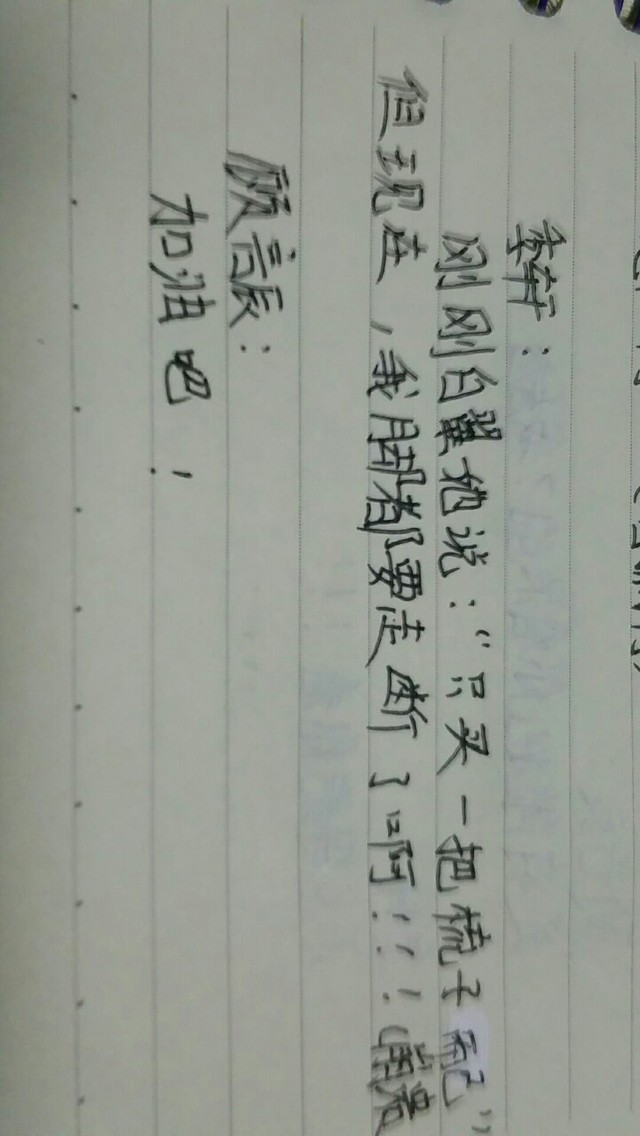 季轩：
刚刚白翼她说：“只买一把梳子而已”
但现在，我脚都要走断了啊！！！（崩溃
顾言辰：
加油吧！